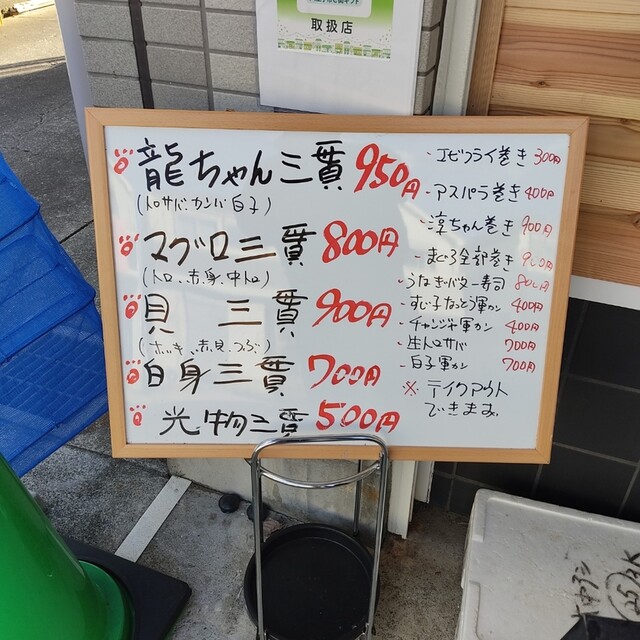 取扱店
龍ちゃん三貫 950円
(トロサバ カンパ 白子)
マグロ三貫 800円
(トロ、赤身、中トロ)
貝 三貫 900円
(ホッキ、赤貝、つぶ)
白身三貫 700円
光物三貫 500円
・エビフライ巻き 300円
・アスパラ巻き 400円
・淳ちゃん巻き 900円
・まぐろ全部巻き 900円
・うなぎバター寿司 800円
・すじ子なっとう軍カン 400円
・チャンジャ軍カン 400円
・生トロサバ 700円
・白子軍カン 700円
※ テイクアウト
できます。